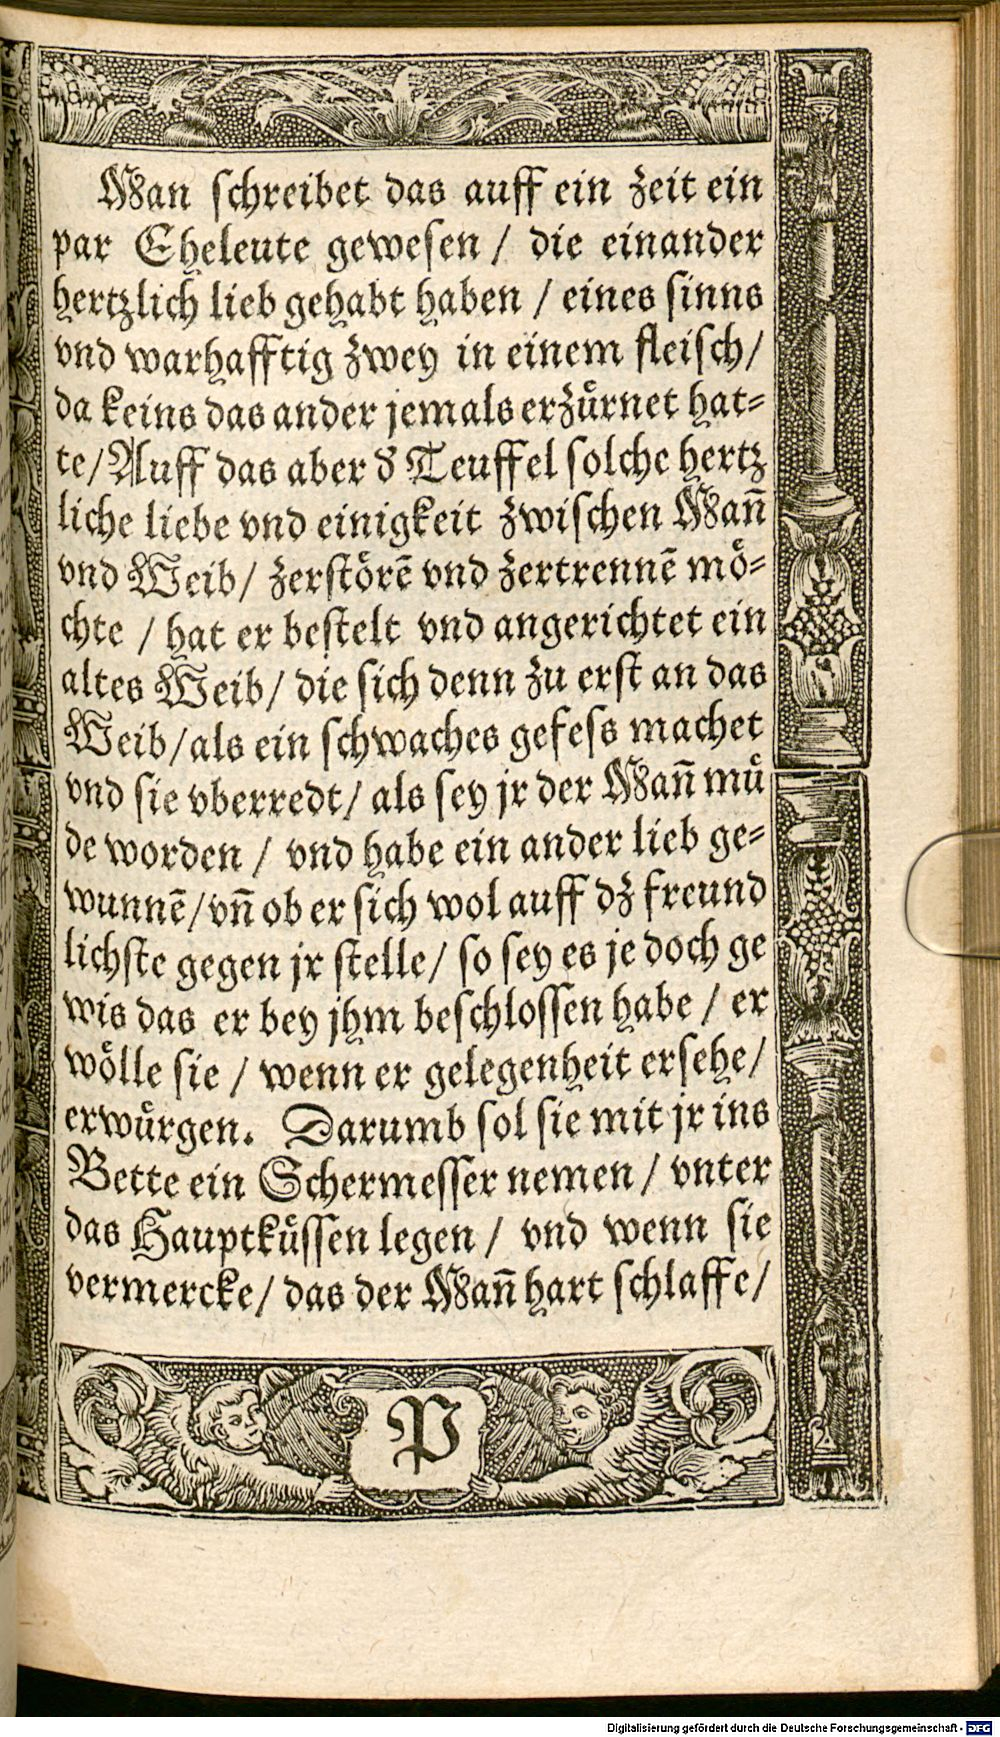 Man schreibet das auff ein zeit ein
par Eheleute gewesen / die einander
hertzlich lieb gehabt haben / eines sinns
vnd warhafftig zwey in einem fleisch /
da keins das ander jemals erzuͤrnet hat⸗
te / Auff das aber d̕ Teuffel solche hertz
liche liebe vnd einigkeit zwischen Man̄
vnd Weib / zerstoͤrē vnd zertrennē moͤ⸗
chte / hat er bestelt vnd angerichtet ein
altes Weib / die sich denn zu erst an das
Weib / als ein schwaches gefess machet
vnd sie vberredt / als sey jr der Man̄ muͤ
de worden / vnd habe ein ander lieb ge⸗
wunnē / vn̄ ob er sich wol auff dz freund
lichste gegen jr stelle / so sey es je doch ge
wis das er bey jhm beschlossen habe / er
woͤlle sie / wenn er gelegenheit ersehe /
erwuͤrgen. Darumb sol sie mit jr ins
Bette ein Schermesser nemen / vnter
das Hauptkuͤssen legen / vnd wenn sie
vermercke / das der Man̄ hart schlaffe /
P
Digitalisierung gefördert durch die Deutsche Forschungsgemeinschaft - DFG